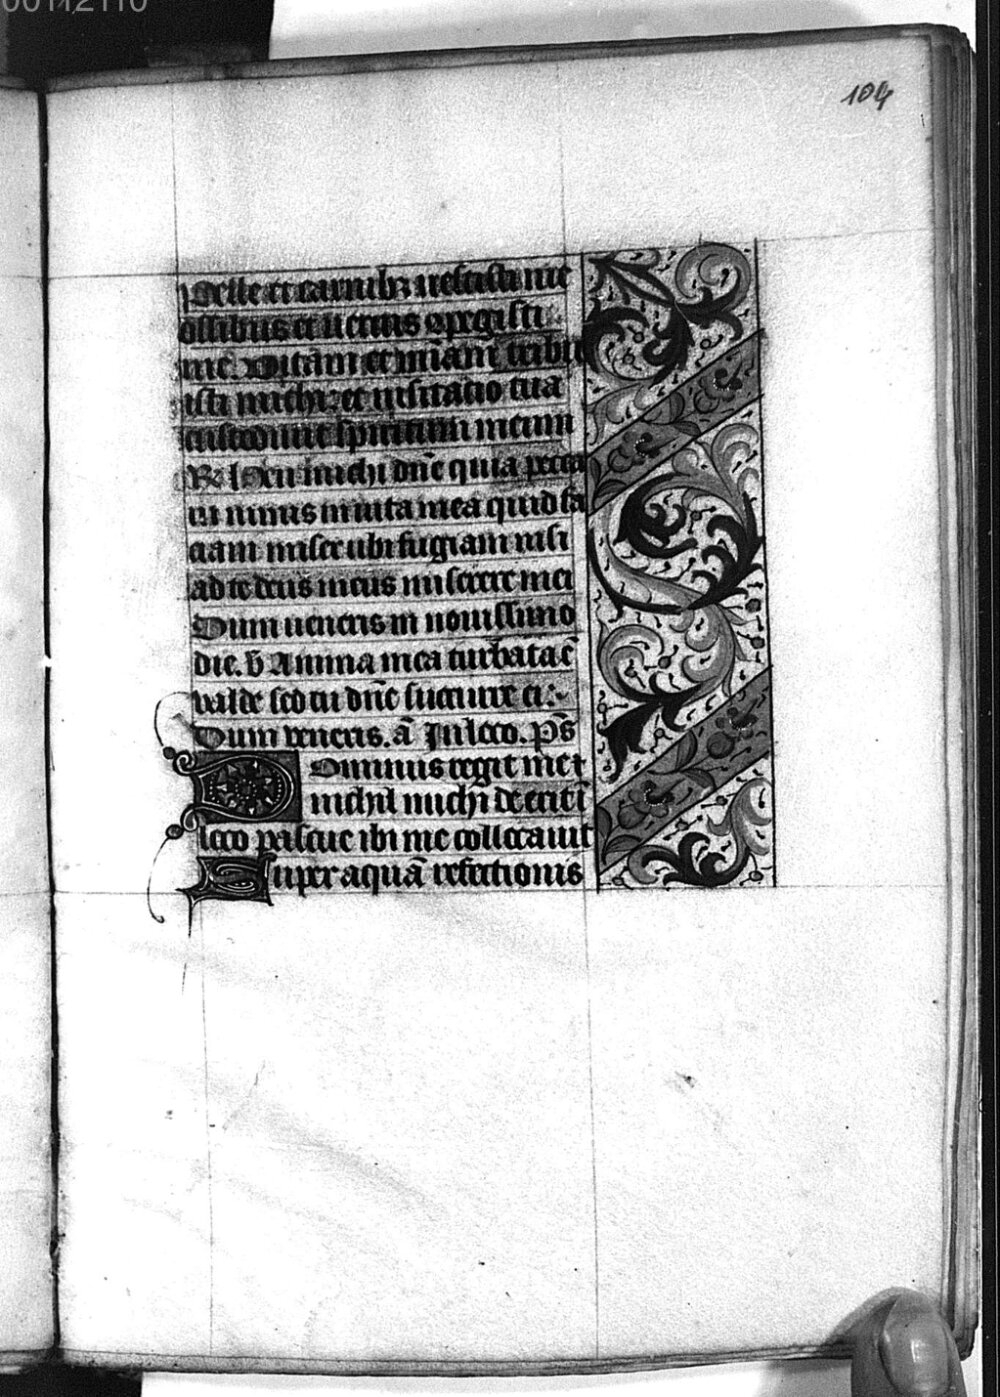 00112110
104
Pelle et carnibꝫ uestisti me
ossibus et neruis cōpegisti
me. Vitam et mīam tribu
isti michi: et uisitatio tua
custodiuit spiritum meum
R̃ heu michi dn̄e quia pecca
ui nimis in uita mea quid fa
ciam miser ubi fugiam nisi
ad te deus meus miserere mei
Dum ueneris in nouissimo
die. v̄ Anima mea turbata ē
valde sed tu dn̄e sucurre ei:
Dum veneris. ā In loco. ps̄
Dominus regit me et
nichil michi deerit ī
loco pascue ibi me collocauit
Super aquā refectionis